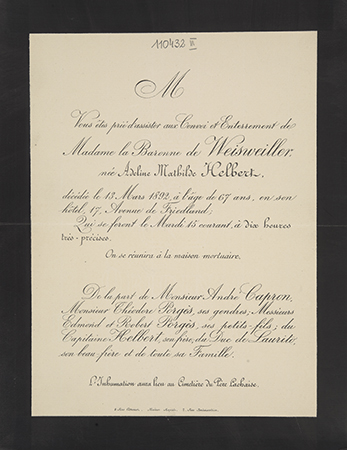 110432 II
M
Vous êtes prié d'assister aux Convoi et Enterrement de
Madame la Baronne de Weisweiller,
née Adeline Mathilde Helbert,
décédée le 13 Mars 1892, à l'âge de 67 ans, en son
hôtel, 17, Avenue de Friedland;
Qui se feront le Mardi 15 courant, à dix heures
très-précises.
On se réunira à la maison mortuaire.
De la part de Monsieur André Capron,
Monsieur Théodore Porgès, ses gendres; Messieurs
Edmond et Robert Porgès, ses petits-fils; du
Capitaine Helbert, son frère; du Duc de Laurito,
son beau-frère et de toute sa Famille.
L'Inhumation aura lieu au Cimetière du Père Lachaise.